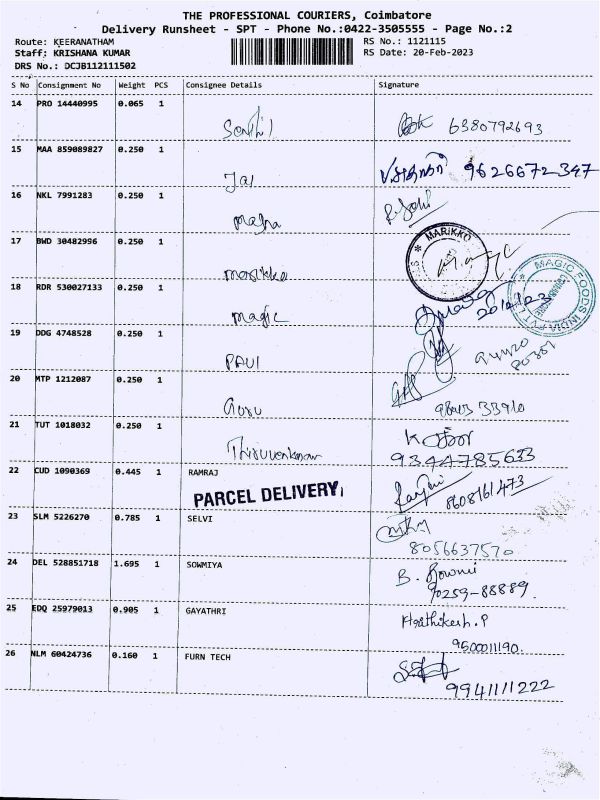 THE PROFESSIONAL COURIERS, Coimbatore
Delivery Runsheet - SPT - Phone No.:0422-3505555 - Page No.:2
Route: KEERANATHAM
RS No.: 1121115
Staff: KRISHANA KUMAR
RS Date: 20-Feb-2023
DRS No.: DCJB112111502
S No Consignment No Weight PCS Consignee Details Signature
14 PRO 14440995 0.065 1
Senthil 6380792693
15 MAA 859089827 0.250 1
Jai 9626672347
16 NKL 7991283 0.250 1
17 BWD 30482996 0.250 1
MARIKKO
Marikko
18 RDR 530027133 0.250 1
MAGIC FOODS INDIA PVT LTD
Magic 20/2/23
19 DDG 4748528 0.250 1
PAUL
20 MTP 1212087 0.250 1
Guru
21 TUT 1018032 0.250 1
9344785633
22 CUD 1090369 0.445 1 RAMRAJ
PARCEL DELIVERY
8608161473
23 SLM 5226270 0.785 1 SELVI
8056637570
24 DEL 528851718 1.695 1 SOWMIYA
B. Sowmi
70259-88889.
25 EDQ 25979013 0.905 1 GAYATHRI
Harthikesh.P
9500011190.
26 NLM 60424736 0.160 1 FURN TECH
9941111222